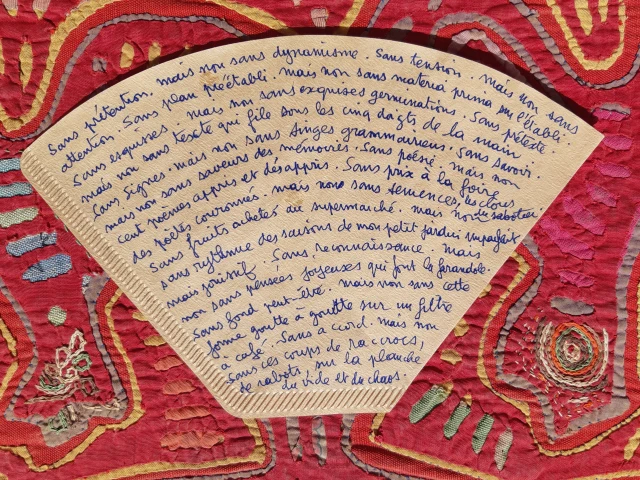 Sans prétention. mais non sans dynamisme. Sans tension. mais non sans
attention. Sans plan préétabli. mais non sans materia prima sur l'établi.
Sans esquisses. mais non sans exquises germinations. Sans prétexte.
mais non sans texte qui file sous les cinq doigts de la main.
Sans signes. mais non sans singes grammairiens. Sans savoir.
mais non sans saveurs des mémoires. Sans poésie. mais non
cent poèmes appris et désappris. Sans prix à la foire
des poètes couronnés. mais non sans semences, les clous
du sabotier.
Sans fruits achetés au supermarché. mais non
sans rythme des saisons de mon petit jardin imparfait
mais jouissif. Sans reconnaissance. mais
non sans pensées joyeuses qui font la farandole.
Sans fond peut-être. mais non sans cette
forme goutte à goutte sur un filtre
à café. Sans accord. mais non
sans ces coups de raccrocs,
de rabots, sur la planche
du vide et du chaos.